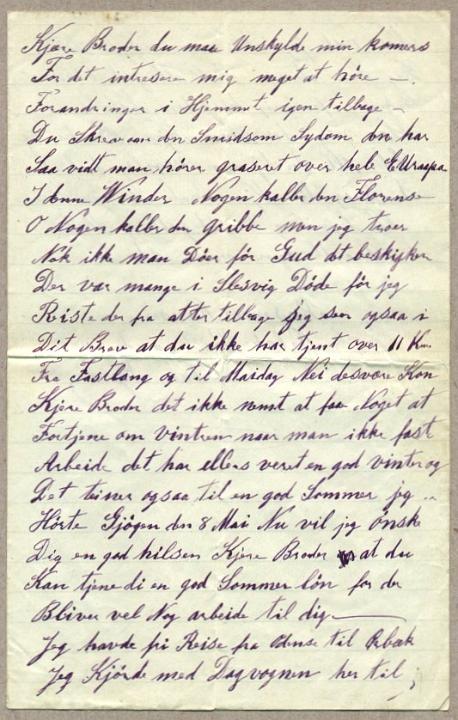 Kjære Broder du maa Unskylde min komers
For det intresere mig meget at höre —
Forandringer i Hjemmet igen tilbage -
Du Skrev om den Smidsom Sydom den har
Saa vidt man hører graseret over hele EUraapa
I denne Winder Nogen kaller den Florense
O Nogen kaller den gribbe men jeg troer
Nok ikke man Döer för Gud det beskikker
Der var mange i Slesvig Döde för jeg
Reiste der fra atter tilbage jeg seer ogsaa i
Dit Brev at du ikke har tjent over 11 Kr
Fra Fastlang og til Maidag Nei desvære Kan
Kjære Broder det ikke nemt at faa Noget at
Fortjene om vintren naar man ikke fast
Arbeide det har ellers veret en god vinter og
Det teiner ogsaa til en god Sommer jeg
Hörte Gjögen den 8 Mai Nu vil jeg önske
Dig en god hilsen Kjere Broder at du
Kan tjene di en god Sommer lön for der
Bliver vel Nog arbeide til dig —
Jeg havde fri Reise fra Odense til Orbæk
Jeg Kjörde med Dagvognen her til ;